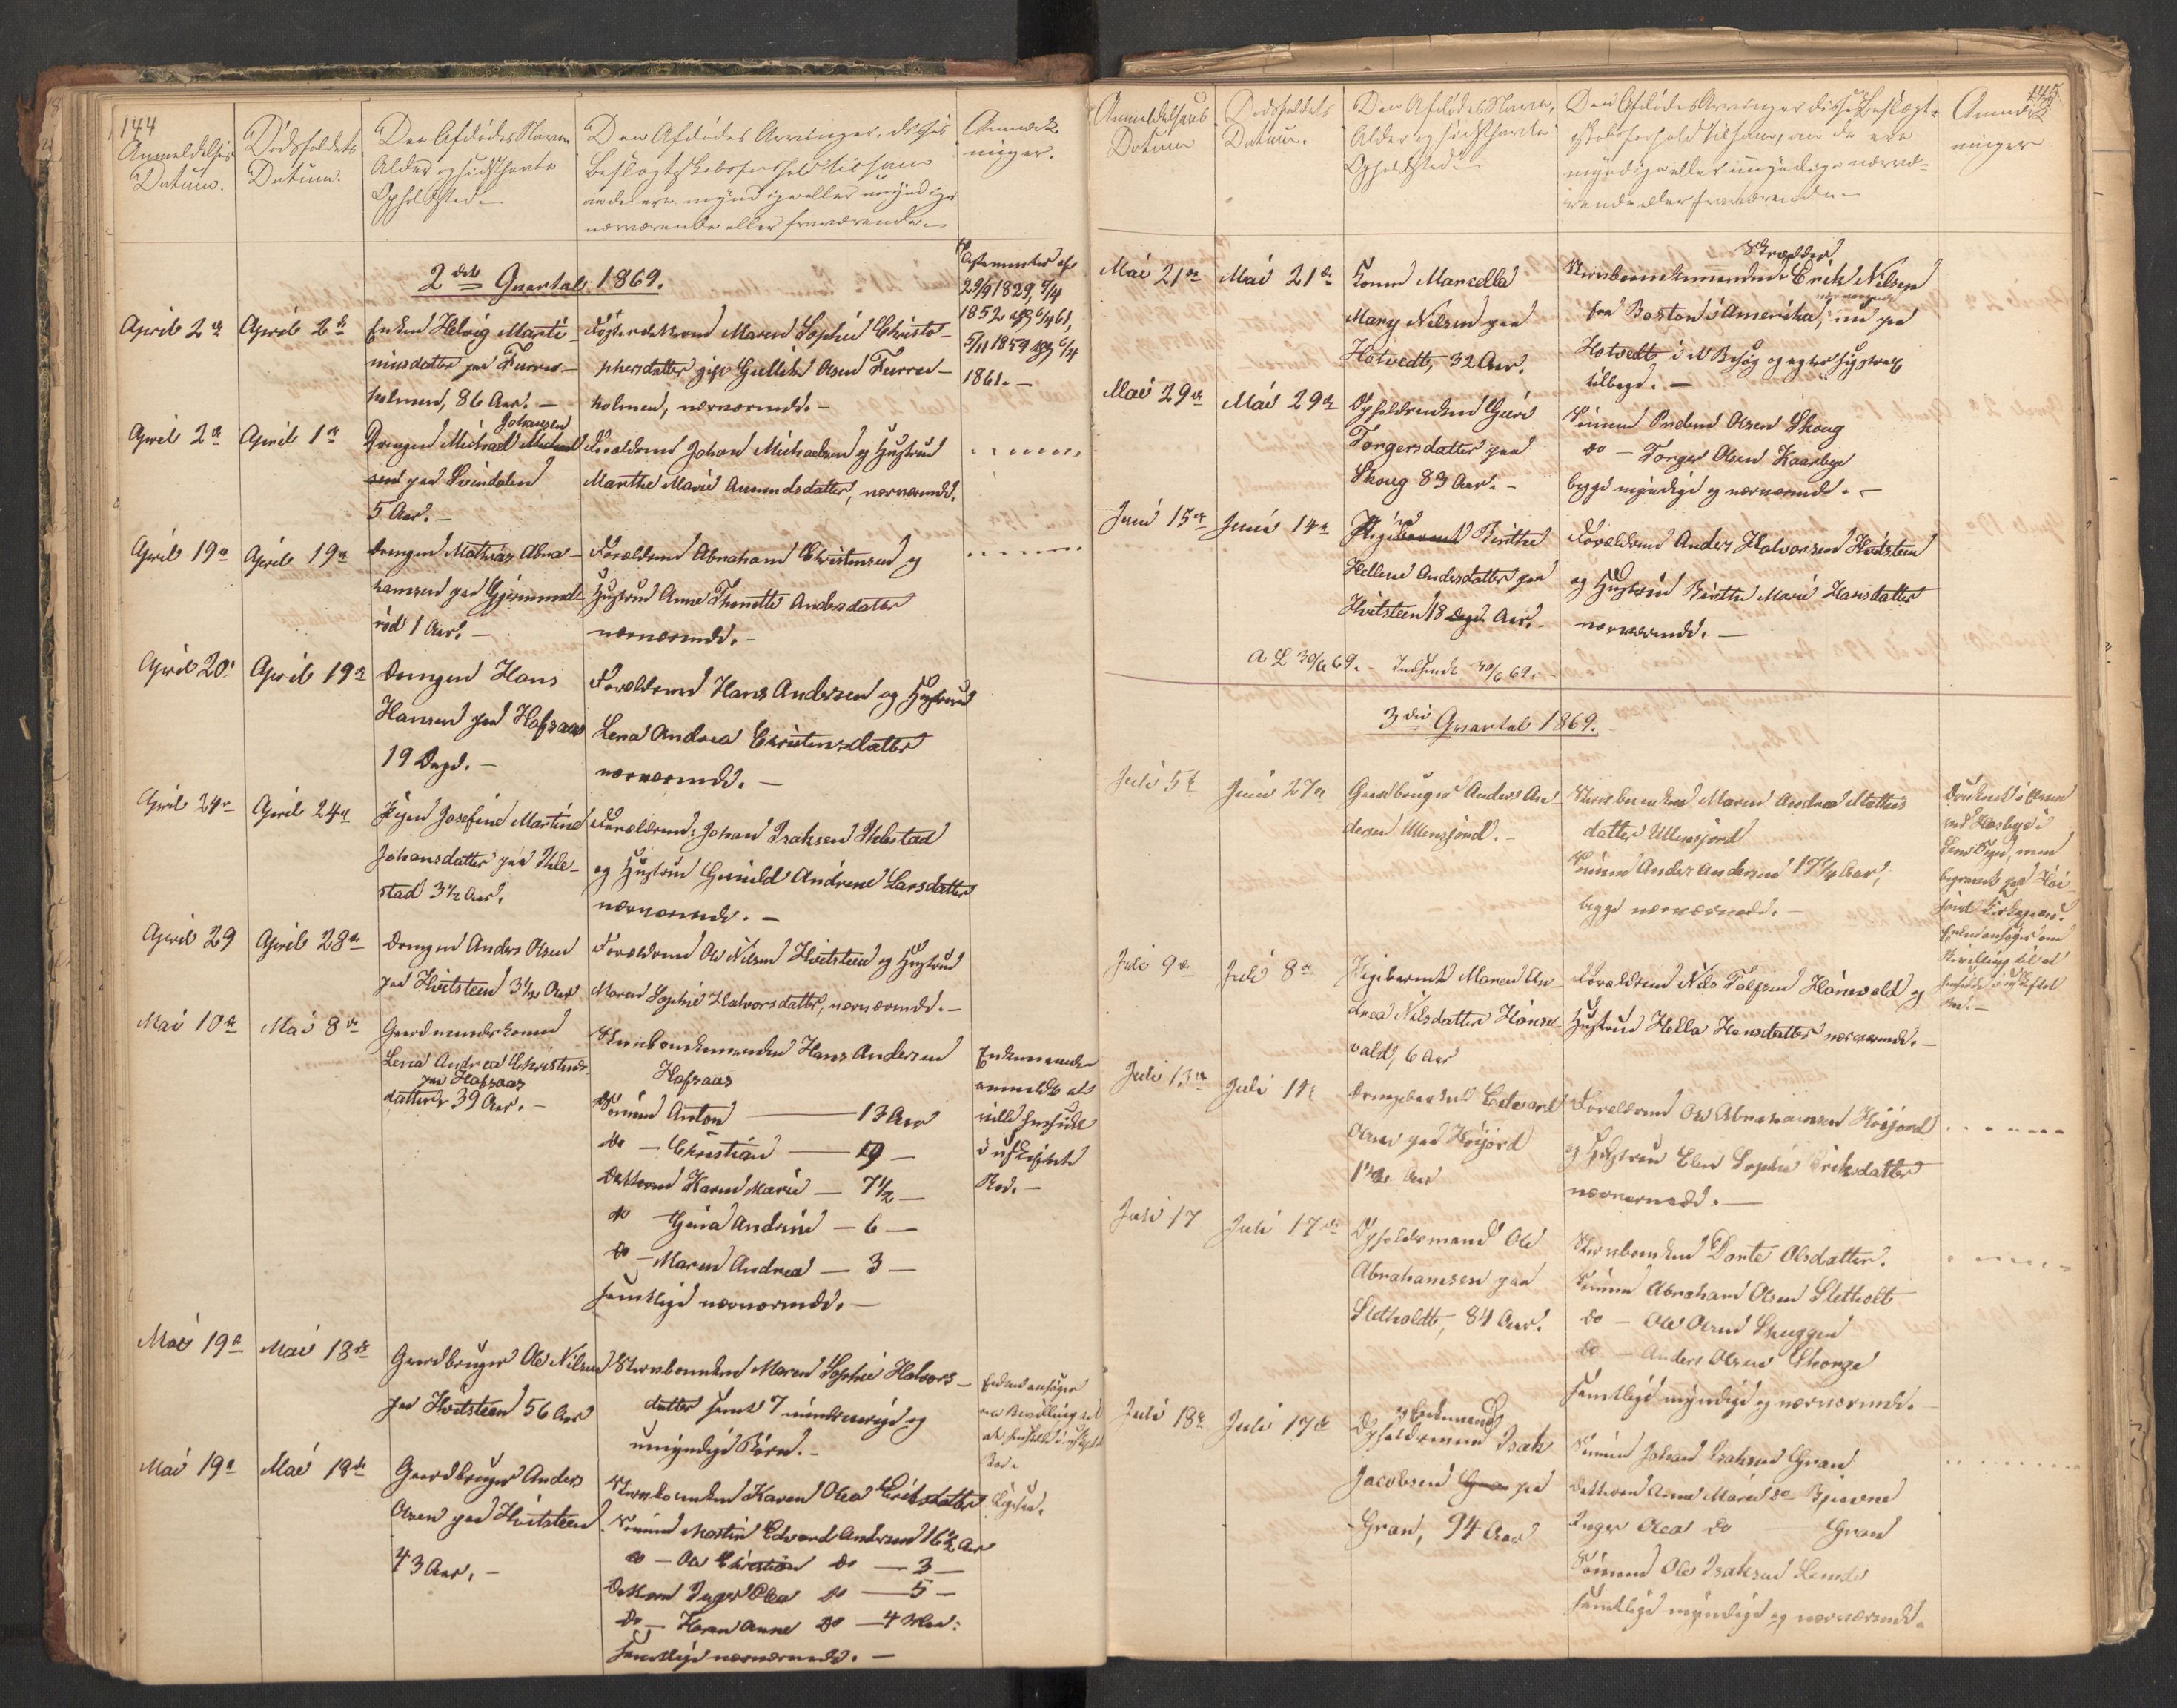 144
Anmeldelses
Datum.
Dødsfaldets
Datum.
Den Afdødes Navn
Alder og sidsthavte
Opholdsted.
Den Afdødes Arvinger, disses
Beslægtskabsforhold til ham
om de ere myndige eller umyndige
nærværende eller fraværende.
Anmærk-
ninger.
2det Qvartal 1869.
Testamenter af
29/9 1829, 5/4
1852 og 6/4 61,
5/11 1859 og 6/4
1861. -
April 2den April 2den
Enken Helvig Marti-
niusdatter paa Furru-
holmen, 86 Aar. -
Fosterdatteren Maren Sophie Christo-
phersdatter gift Gullik Olsen Furru-
holmen, nærværende. -
April 2den April 1ste
Johansen
Drengen Michael Michael
sen paa Svindalen
5 Aar. -
Forældrene Johan Michaelsen og Hustrue
Marthe Marie Amundsdatter, nærværende.
April 19de April 19de
Drengen Mathias Abra-
hamsen paa Gjermund-
rød 1 Aar. -
Forældrene Abraham Christensen og
Hustrue Anne Thonette Andersdatter
nærværende. -
April 20 April 19de
Drengen Hans
Hansen paa Hafsaas
19 Dage. -
Forældrene Hans Andersen og Hustrue
Lena Andrea Christensdatter
nærværende. -
April 24de April 24de
Pigen Josefine Martine
Johansdatter paa
stad 3 1/2 Aar.
Forældrene: Johan Isaksen
og Hustrue Gunild Andrine Larsdatter
nærværende. -
April 29 April 28de
Drengen Anders Olsen
paa Hvitsteen 3 1/2 Aar
Forældrene Ole Nilsen Hvitsteen og Hustrue
Maren Sophie Halvorsdatter, nærværende. -
Mai 10de Mai 8de
Gaardmandskonen
Lena Andrea Christens-
paa Hafsaas
datter 39 Aar. -
Enkemanden Hans Andersen
Hafsaas
Sønnen Anton - 13 Aar
do - Christian - 19 -
Datteren Karen Marie - 7 1/2 -
do Andrine - 6 -
do - Maren Andrea - 3 -
samtlige nærværende. -
Enkemanden
anmeldte at
ville hensidde
i uskiftet
Bo. -
Mai 19de Mai 18de
Gaardbruger Ole Nilsen
paa Hvitsteen 56 Aar
Maren Sophie Halvors-
datter samt 7 mindreaarige og
umyndige Børn. -
Enken ansøger
om Bevilling til
at hensidde i uskiftet
Bo.
Mai 19de Mai 18de
Gaardbruger Anders
Olsen paa Hvitsteen
43 Aar. -
Karen Olea Eriksdatter
Sønnen Martin Edvard Andersen 16 1/2 Aar
do - Ole Christian do - 3 -
Datteren Inger Olea do - 5 -
do - Karen Anne do - 4 Mdr:
samtlige nærværende. -
Ligesaa.
145
Anmeldelsens
Datum
Dødsfaldets
Datum.
Den Afdødes Navn,
Alder og sidsthavte
Opholdsted.
Den Afdødes Arvinger disses Beslægt-
skabsforhold til ham, om de ere
myndige eller umyndige nærvæ-
rende eller fraværende
Anmærk-
ninger
Mai 21de Mai 21de
Konen Marcella
Mary Nilsen paa
Hotvedt, 32 Aar.
Skrædder
Enkemanden Erik Nilsen
fra Boston i Amerika, nu paa
Hotvedt i Besøg og agter sig strax
tilbage. -
Mai 29de Mai 29de
Opholdsenken Guri
Torgersdatter paa
Skoug 83 Aar. -
Sønnen Anders Olsen Skoug
do - Torger Olsen Kaarbye
begge myndige og nærværende. -
Juni 15de Juni 14de
Pigebarnet Birthe
Helene Andersdatter paa
Hvitsteen 18 Dage Aar. -
Forældrene Anders Halvorsen Hvitsteen
og Hustrue Birthe Marie Hansdatter
nærværende. -
A. L. 30/6 69. - Indsendt 30/6 69. -
3die Qvartal 1869.
Juli 5te Juni 27de
Gaardbruger Anders An-
dersen Ullensjord. -
Maren Andrea Mathis
datter Ullensjord
Sønnen Anders Andersen 17 1/4 Aar,
begge nærværende. -
Druknet i
ved
Sogn, men
begravet paa Høi-
jord Kirkegaard.
Enken ansøger om
Bevilling til at
hensidde i uskiftet
Bo. -
Juli 9de Juli 8de
Pigebarnet Maren An-
drea Nilsdatter Høns-
vald, 6 Aar
Forældrene Nils Tolfsen Hønsvald og
Hustrue Hella Hansdatter nærværende. -
Juli 13de Juli 11te
Drengebarnet Edvard
Olsen paa Høijord
1 1/2 Aar
Forældrene Ole Abrahamsen Høijord
og Hustrue Elen Sophie Eriksdatter
nærværende. -
Juli 17 Juli 17de
Opholdsmand Ole
Abrahamsen paa
Sletholdt, 84 Aar.
Dorte Olsdatter.
Sønnen Abraham Olsen Sletholt
do - Ole Olsen Skuggen
do - Anders Olsen Skorge
samtlige myndige og nærværende. -
Juli 18de Juli 17de
og Enkemand
Opholdsmand Isak
Jacobsen Gran paa
Gran, 94 Aar
Sønnen Johan Isaksen Gran
Datteren Anne Marie do Bjuerne
Inger Olea do Gran
Sønnen Ole Isaksen Lende
samtlige myndige og nærværende.